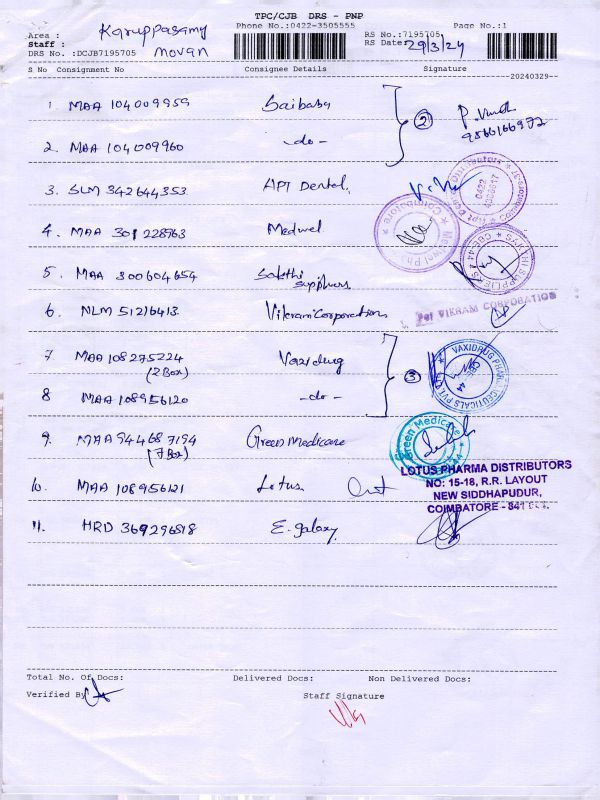 TPC/CJB DRS - PNP
Phone No.:0422-3505555 Page No.:1
Area : Karuppasamy RS No.:7195705
Staff : RS Date: 29/3/24
DRS No. :DCJB7195705 Movan
S No Consignment No Consignee Details Signature
20240329--
1. MAA 104009959 Saibaba
2 P. 9566166972
2. MAA 104009960 -do-
3. SLM 342644353 APT Dental
4. MAA 301228963 Medwel
5. MAA 300604654 Sakthi Suppliers
SAKTHI SUPPLIERS
6. NLM 51216413 Vikram Corporations
For VIKRAM CORPORATION
7 MAA 108275224 Vaxi drug
(2 Box)
3
VAXIDRUG PHARMACEUTICALS PVT LTD
8 MAA 108956120 -do-
9. MAA 944687194 Green Medicare
(7 Box)
Green Medicare
10. MAA 108956121 Lotus
LOTUS PHARMA DISTRIBUTORS
NO: 15-18, R.R. LAYOUT
NEW SIDDHAPUDUR,
COIMBATORE - 641
11. HRD 369296818 E. galaxy
Total No. Of Docs: Delivered Docs: Non Delivered Docs:
Verified By Staff Signature